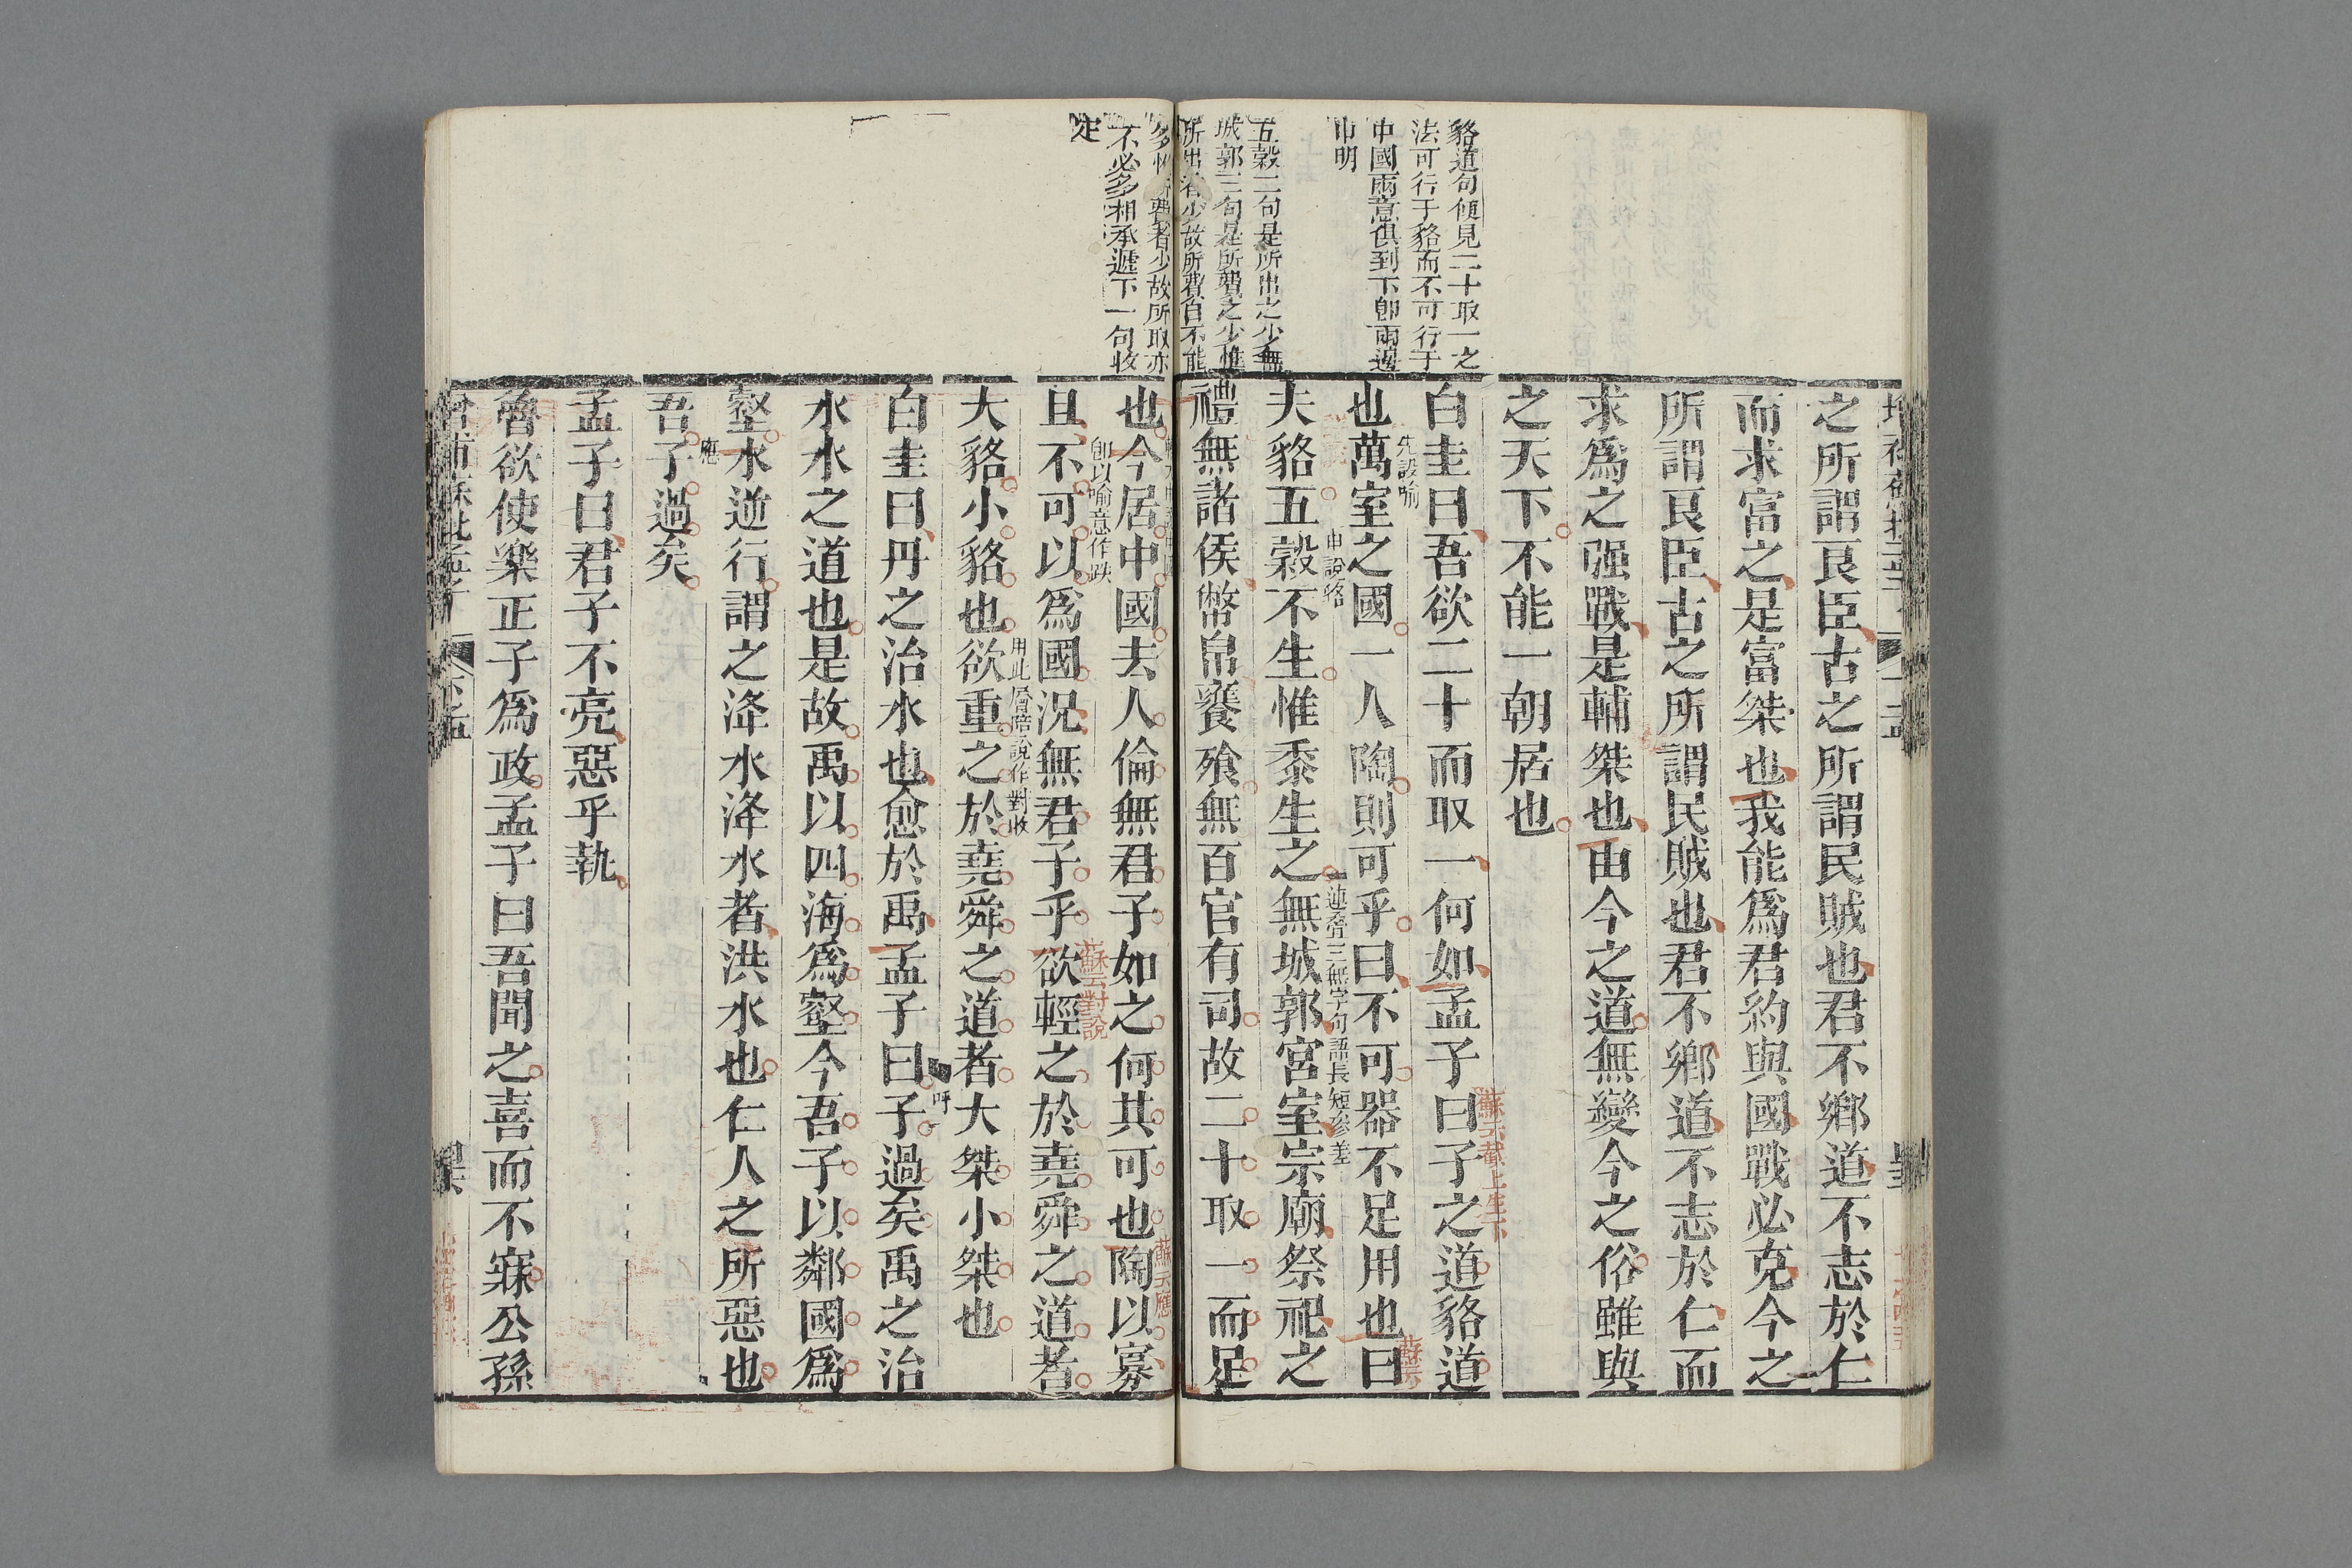 貉道句便見二十取一之
法可行于貉而不可行于
中國兩意俱到下卽兩邊
申明
五穀二句是所出之少無
城郭三句是所費之少惟
所出者少故所費自不能
多惟所費者少故所取亦
不必多相承遞下一句收
定
之所謂良臣古之所謂民賊也君不鄉道不志於仁
而求富之是富桀也我能爲君約與國戰必克今之
所謂良臣古之所謂民賊也君不鄉道不志於仁而
求爲之强戰是輔桀也由今之道無變今之俗雖與
之天下不能一朝居也
蘇云截上生下
白圭曰吾欲二十而取一何如孟子曰子之道貉道
先設喻
蘇云
也萬室之國一人陶則可乎曰不可器不足用也曰
申說貉
連當三無字句語長短參差
夫貉五穀不生惟黍生之無城郭宮室宗廟祭祀之
禮無諸侯幣帛饔飧無百官有司故二十取一而足
蘇云應
也今居中國去人倫無君子如之何其可也陶以寡
卽以喻意作跌
蘇云對說
且不可以爲國況無君子乎欲輕之於堯舜之道者
用此層陪說作對收
大貉小貉也欲重之於堯舜之道者大桀小桀也
呼
白圭曰丹之治水也愈於禹孟子曰子過矣禹之治
水水之道也是故禹以四海爲壑今吾子以鄰國爲
壑水逆行謂之洚水洚水者洪水也仁人之所惡也
應
吾子過矣
孟子曰君子不亮惡乎執
魯欲使樂正子爲政孟子曰吾聞之喜而不寐公孫